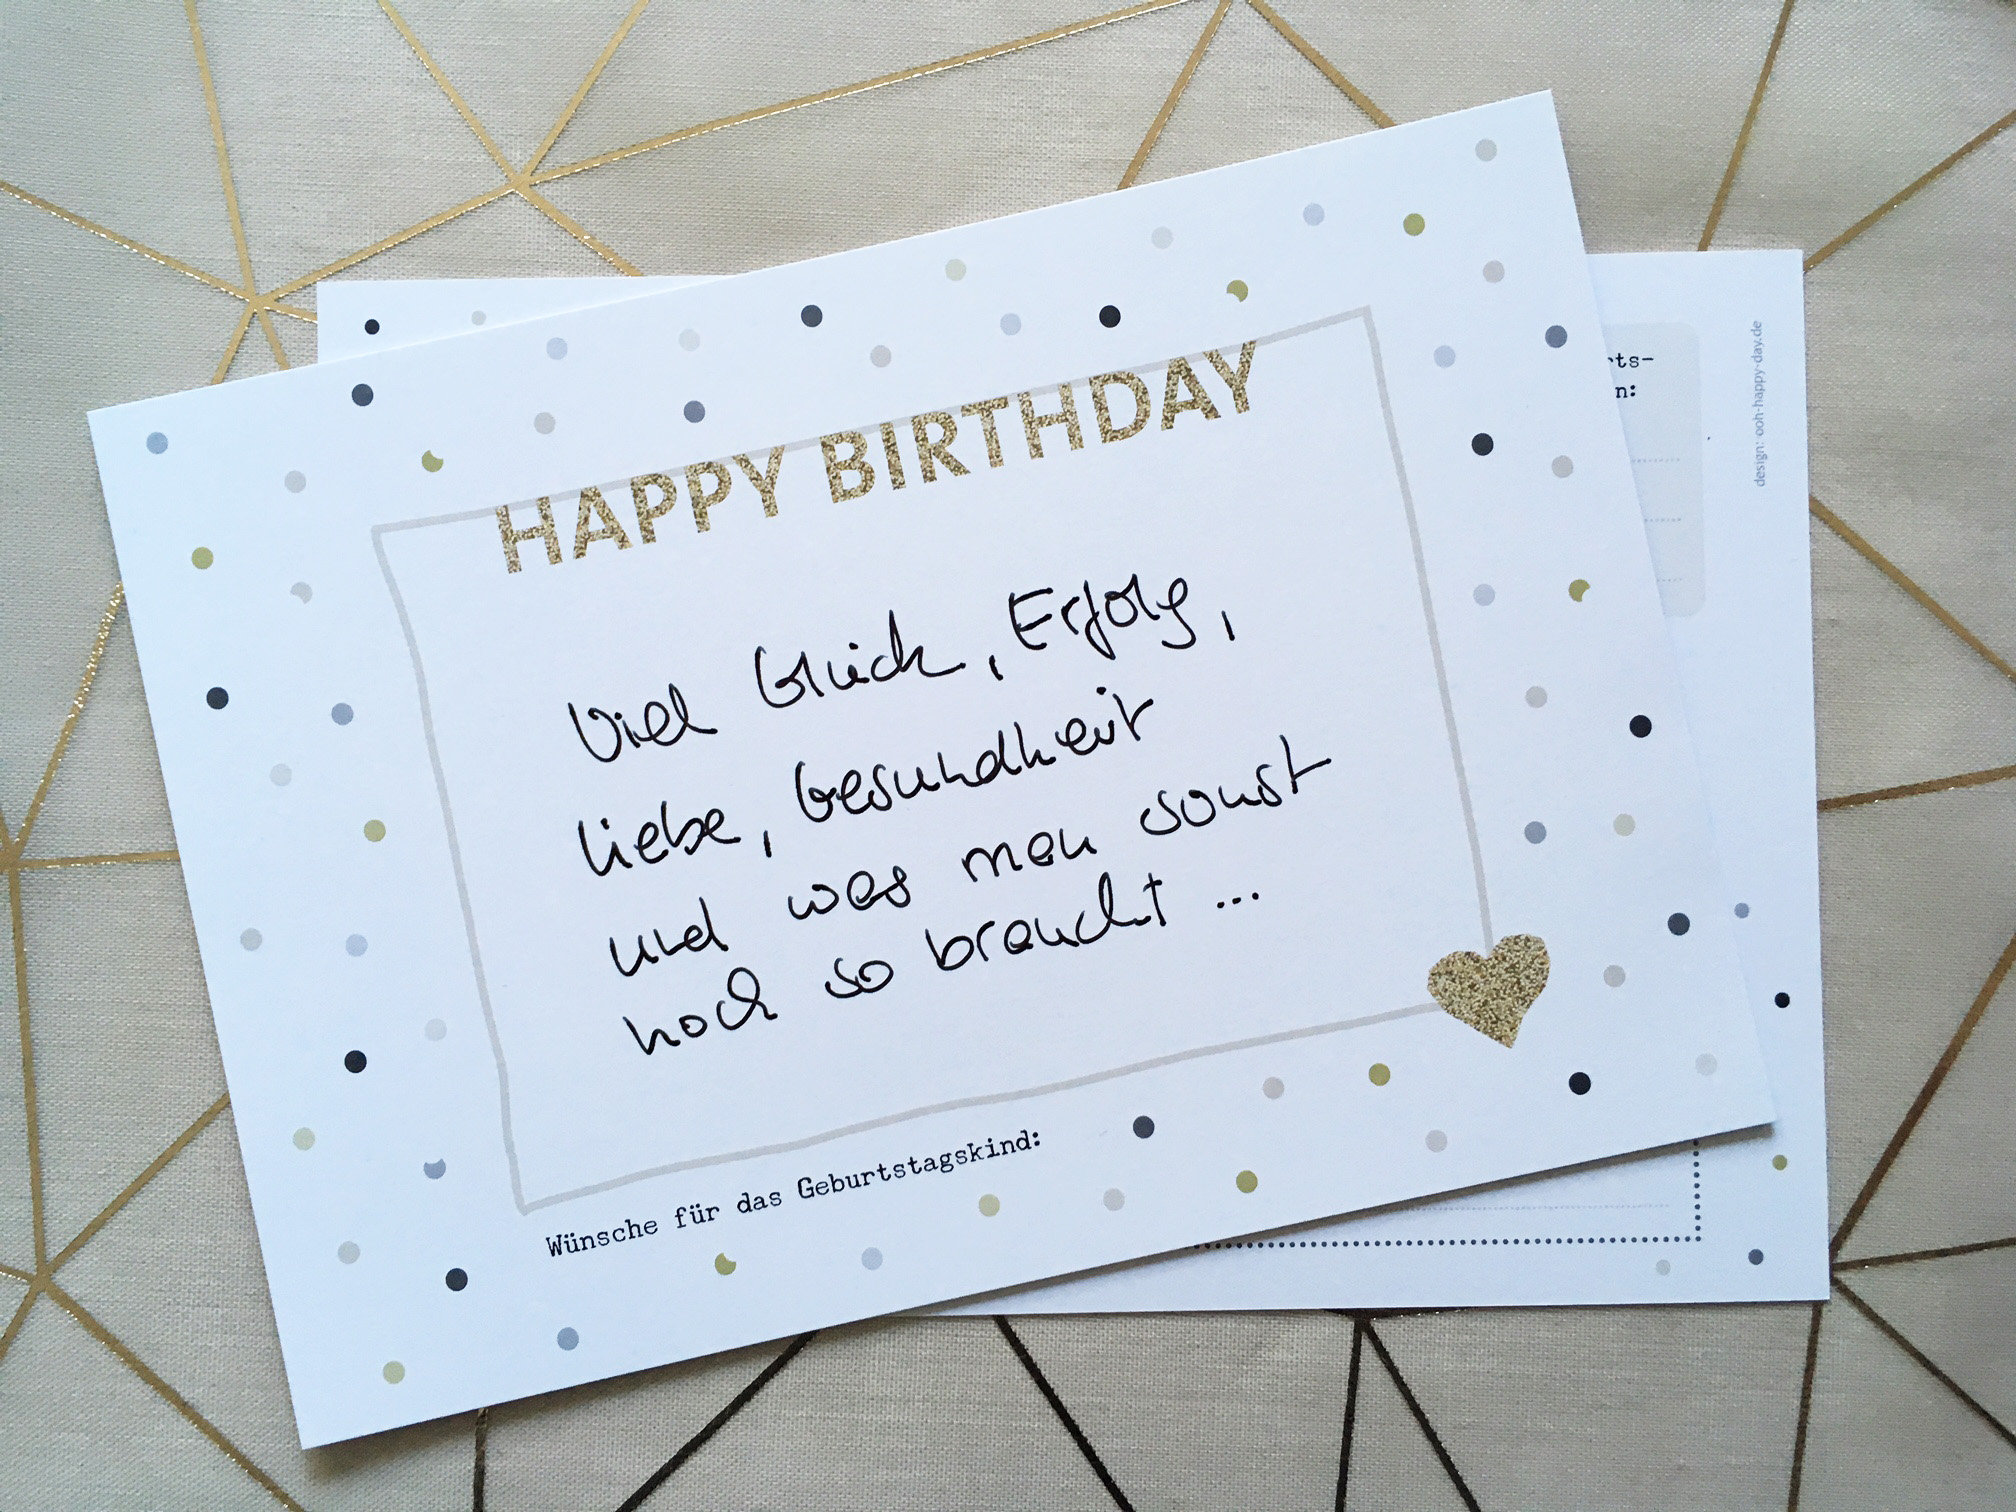 HAPPY BIRTHDAY
Viel Glück, Erfolg,
Liebe, Gesundheit
und was man sonst
noch so braucht ...
Wünsche für das Geburtstagskind:
rts-
n:
design: ooh-happy-day.de